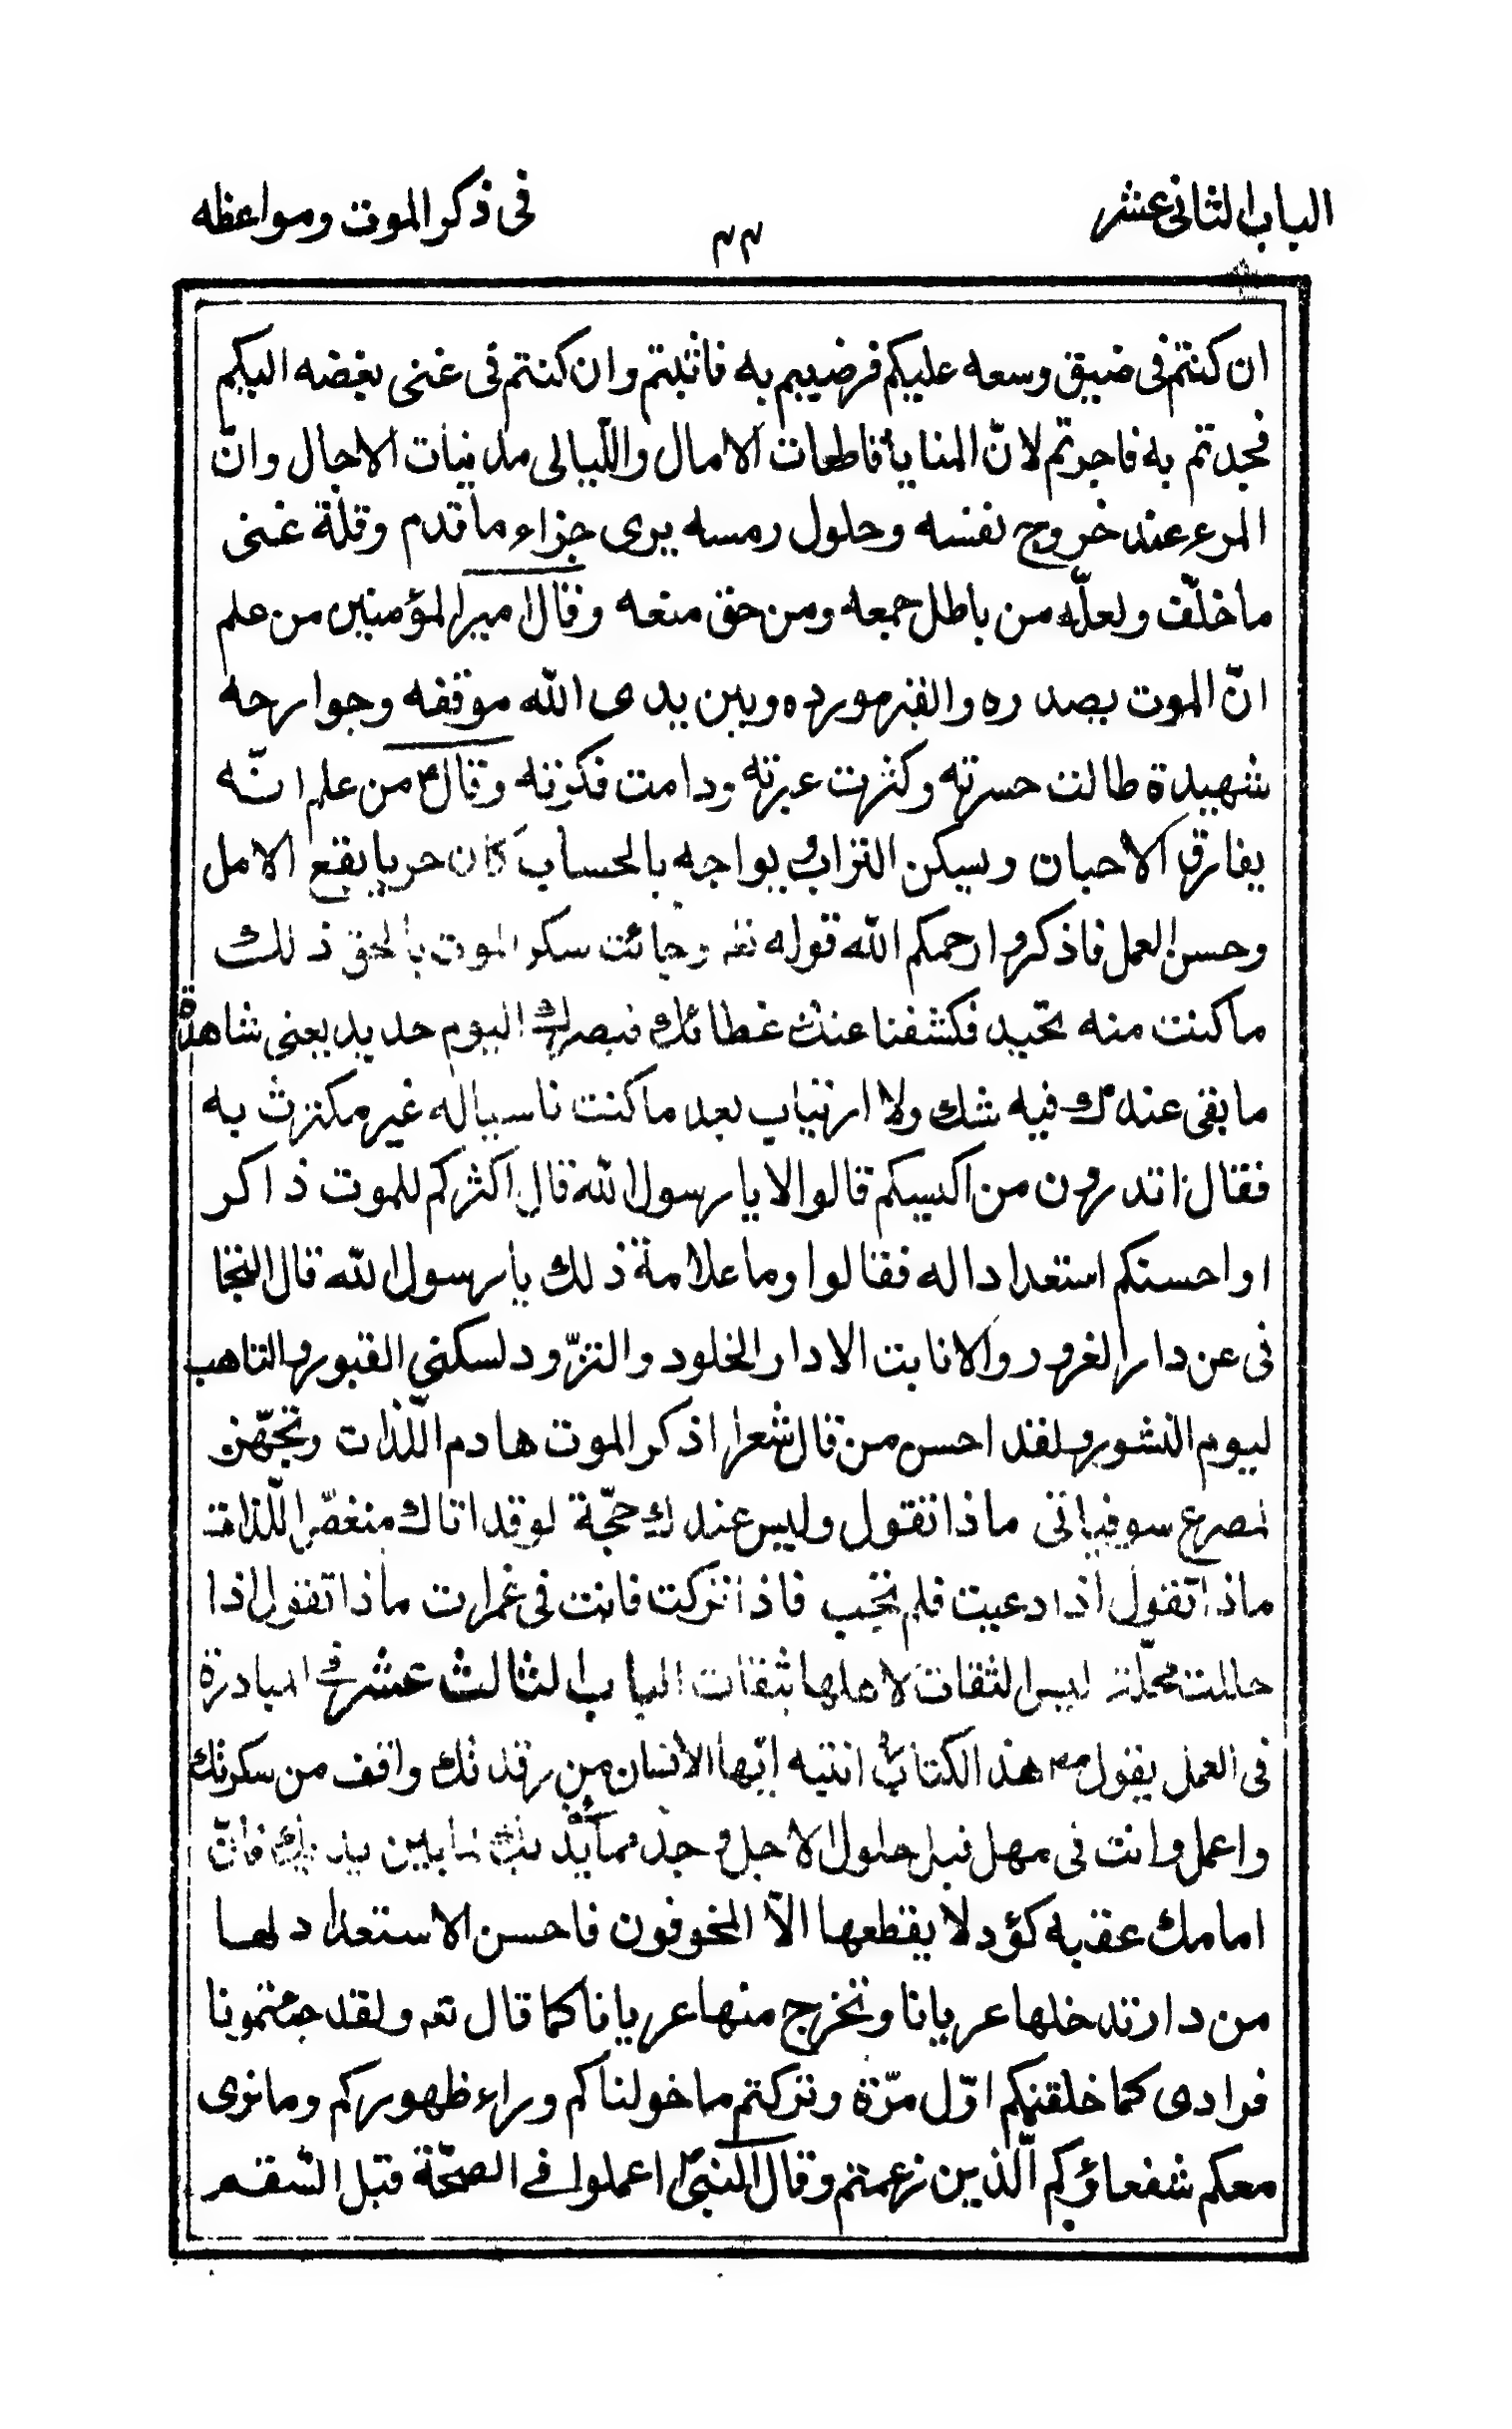 الباب الثانی عشر
٣٣
فی ذکر الموت ومواعظه
ان کنتم فی ضیق وسعه علیکم فرضیتم به فاثبتم وان کنتم فی غنی بغضه الیکم
فجدتم به فاجرتم لانّ المنایا قاطعات الامال واللّیالی مدنیات الاجال وانّ
المرء عند خروج نفسه وحلول رمسه یری جزاء ما قدم وقلة غنی
ما خلّف ولعلّه من باطل جمعه ومن حق منعه وقال امیر المؤمنین من علم
انّ الموت بصدره والقبر مورده وبین یدی الله موقفه وجوارحه
شهیدة طالت حسرته وکثرت عبرته ودامت فکرته وقالؑ من علم انّه
یفارق الاحبان ویسکن التراب ویواجه بالحساب کان حریا بقع الامل
وحسن العمل فاذکروا رحمکم الله قوله تعه وجائت سکر الموت بالحق ذلك
ما کنت منه تحید فکشفنا عنك غطائك فبصرك الیوم حدید یعنی شاهدة
ما بقی عندك فیه شك ولا ارتیاب بعد ما کنت ناسیا له غیر مکترث به
فقال اتدرون من اکیسکم قالوا لا یا رسول الله قال اکثرکم للموت ذاکر
او احسنکم استعدادا له فقالوا وما علامة ذلك یا رسول الله قال التجا
فی عن دار الغرور والانابت الا دار الخلود والتزّود لسکنی القبور والتاهب
لیوم النشور ولقد احسن من قال شعرا اذکر الموت هادم اللّذات وتجهّز
لمصرع سوف یاتی ماذا تقول ولیس عندك حجّة لو قد اتاك منغصّ اللّذات
ماذا تقول اذا دعیت فلم تجب فاذا ترکت فانت فی غمرات ماذا تقول اذا
حللت محلّة لیس الثقات لاهلها بثقات الباب الثالث عشر فی المبادرة
فی العمل یقول مص هذا الکتاب انتبه ایّها الأنسان من رقدتك وافق من سکرتك
واعمل وانت فی مهل قبل حلول الاجل وجد مما بیدیك لما بین یدیك فانّ
امامك عقبه کؤد لا یقطعها الّا المخوفون فاحسن الاستعداد لها
من دار تدخلها عریانا وتخرج منها عریانا کما قال تعه ولقد جئتمونا
فرادی کما خلقنکم اوّل مرّة وترکتم ما خولناکم وراء ظهورکم وما نری
معکم شفعاؤکم الّذین زعمتم وقال النبیّ اعملوا فی الصحّة قبل السّقم